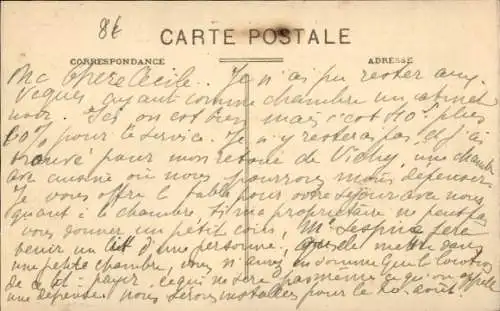 8t
CARTE POSTALE
CORRESPONDANCE
ADRESSE
Ma Chere Cecile. Je n'ai pu rester aux
ayant comme chambre un cabinet
noir. Ici on est bien mais c'est 40f plus
10% pour le service. Je n'y resterai pas et j'ai
trouvé pour mon retour de Vichy, une chambre
avec cuisine où nous pourrons moins dépenser
Je vous offre la table pour votre séjour avec nous,
quant à la chambre. Si ma propriétaire ne peut pas
vous donner un petit coin, Me Lespine fera
tenir un lit d'une personne, mettre dans
une petite chambre, vous n'aurez en somme que la location
de ce lit payer, ce qui ne sera pas même ce qu'on appelle
une dépense. nous serons installés pour le 10 août.